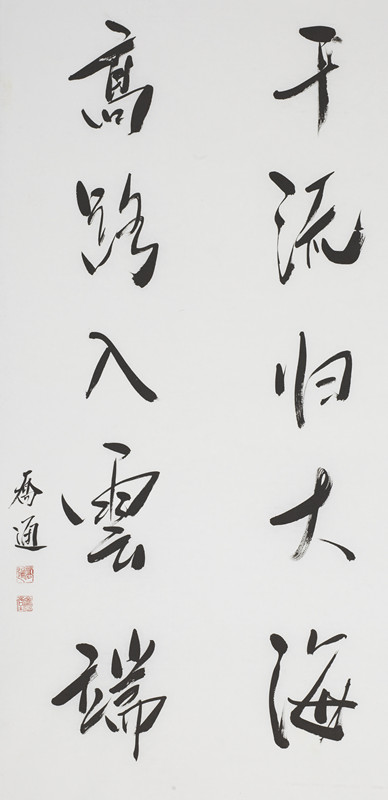 千流归大海
高路入雲端
喬通